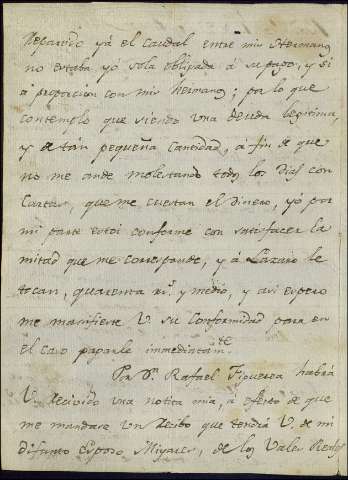 Repartido yá el caudal entre mis Hermanos
no estaba yó sola obligada á su pago, y sí
á proporcion con mis hermanos; por lo que
contemplo que siendo una deuda legitima,
y de tán pequeña Cantidad, á fin de que
no me ande molestando todos los dias con
Cartas, que me cuestan el dinero, yó por
mi parte estoi conforme con satisfacer la
mitad que me corresponde, y á Lazaro le
tocan, quarenta rs. y medio, y asi espero
me manifieste V. su Conformidad para en
el caso pagarle immediatamte.
Por Dn. Rafael Figueroa habrá
V. Recivido una notita mia, á efecto de que
me mandase un Recibo que tendrá V. de mi
difunto Esposo Miyares, de los Vales Reales